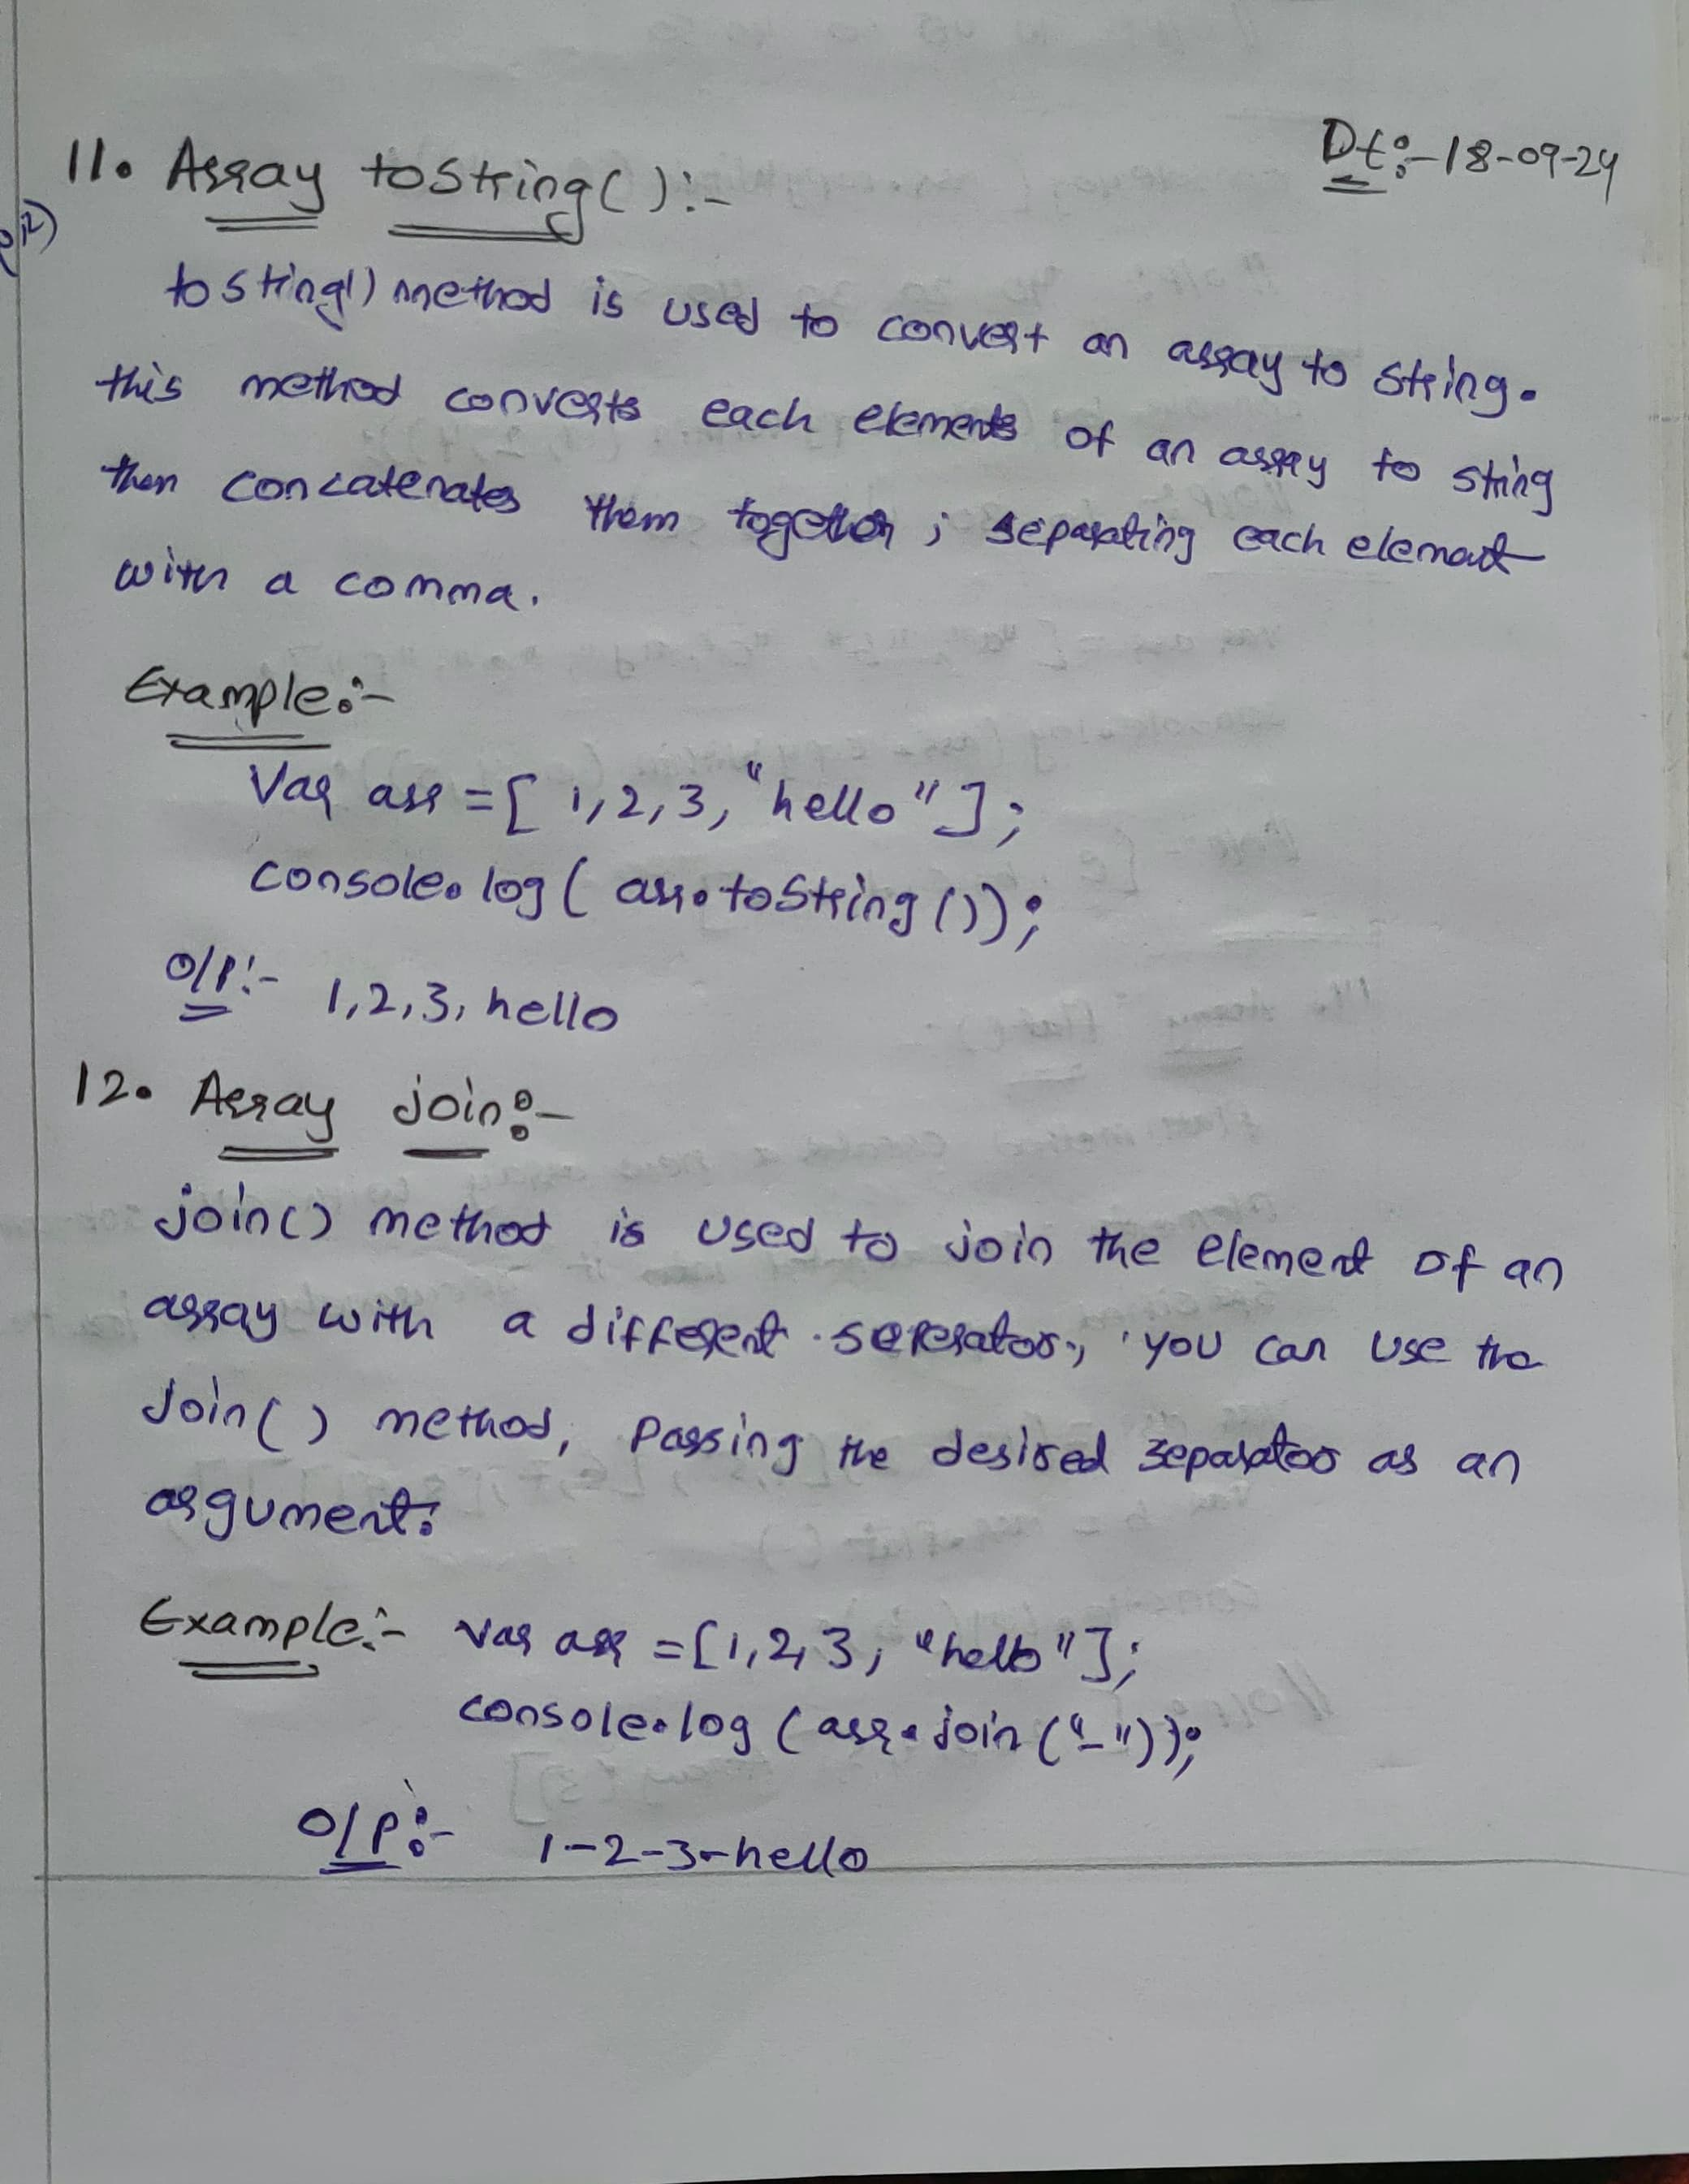 Dt:-18-09-24
11. Array toString():-
tostring() method is used to convert an array to string.
this method converts each elements of an array to string
then concatenates them together, separating each element
with a comma.
Example:-
Var arr = [ 1,2,3,"hello"];
console.log( arr.toString());
O/P:- 1,2,3,hello
12. Array join:-
join() method is used to join the element of an
array with a different seperator, you can use the
Join() method, Passing the desired separator as an
argument.
Example:- Var arr = [1,2,3, "hello"];
console.log (arr.join ("-"));
O/P:- 1-2-3-hello